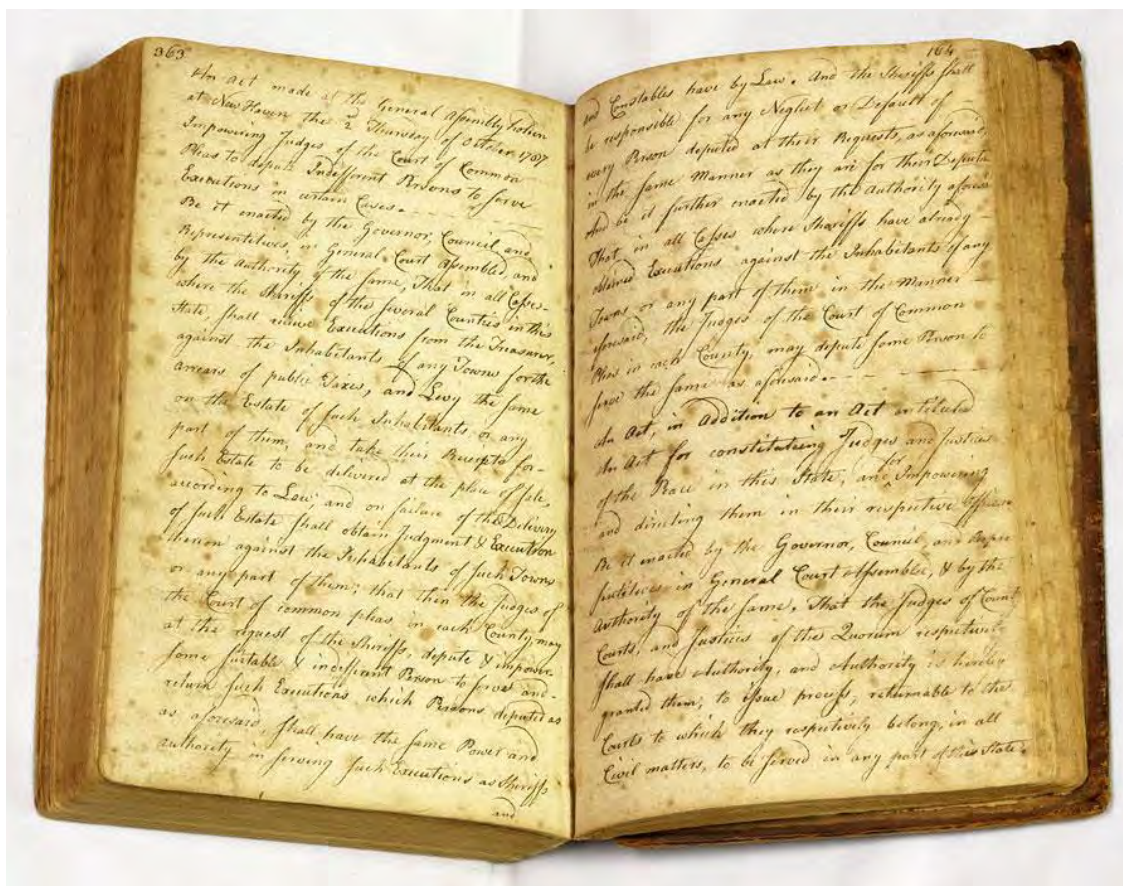 363
An act made at the General Assembly holen
at New Haven the 2d Thursday of October 1787
Impowering Judges of the Court of Common
Pleas to depute Indifferent Persons to serve
Executions in certain Cases.
Be it enacted by the Governor, Council and
Representitives, in General Court Assembled, and
by the authority of the same, That in all Cases
where the Sheriffs of the several Counties in this
State, shall receive Executions from the Treasurer,
against the Inhabitants of any Towns for the
arrears of public Taxes, and Levy the same
on the Estate of such Inhabitants or any
part of them, and take their Receipts for
such Estate to be delivered at the place of sale
according to Law; and on failure of the Delivery
of such Estate shall obtain Judgment & Execution
thereon against the Inhabitants of such Towns
or any part of them; that then the Judges of
the Court of common pleas in each County may
at the request of the Sheriffs, depute & impower
some suitable & indifferent Person to serve and
return such Executions which Persons deputed as
as aforesaid, shall have the same Power and
authority in serving such Executions as Sheriffs
and
164
and Constables have by Law. And the Sheriffs shall
be responsible for any Neglect or Default of
every Person deputed at their Requests, as aforesaid,
in the same Manner as they are for their
And be it further enacted by the Authority
That in all Cases where Sheriffs have already
obtained Executions against the Inhabitants of any
Towns or any part of them in the manner
aforesaid, the Judges of the Court of Common
Pleas in each County, may depute some Person to
serve the same as aforesaid.
An Act, in Addition to an Act intitled
An Act for constituting Judges and Justices
of the Peace in this State, and for Impowering
and directing them in their respective
Be it enacted by the Governor, Council and
in General Court Assembled, & by the
Authority of the same, That the Judges of County
Courts, and Justices of the Quorum respectively
shall have Authority, and Authority is hereby
granted them, to issue process, returnable to the
Courts to which they respectively belong, in all
Civil matters, to be served in any part of this State.